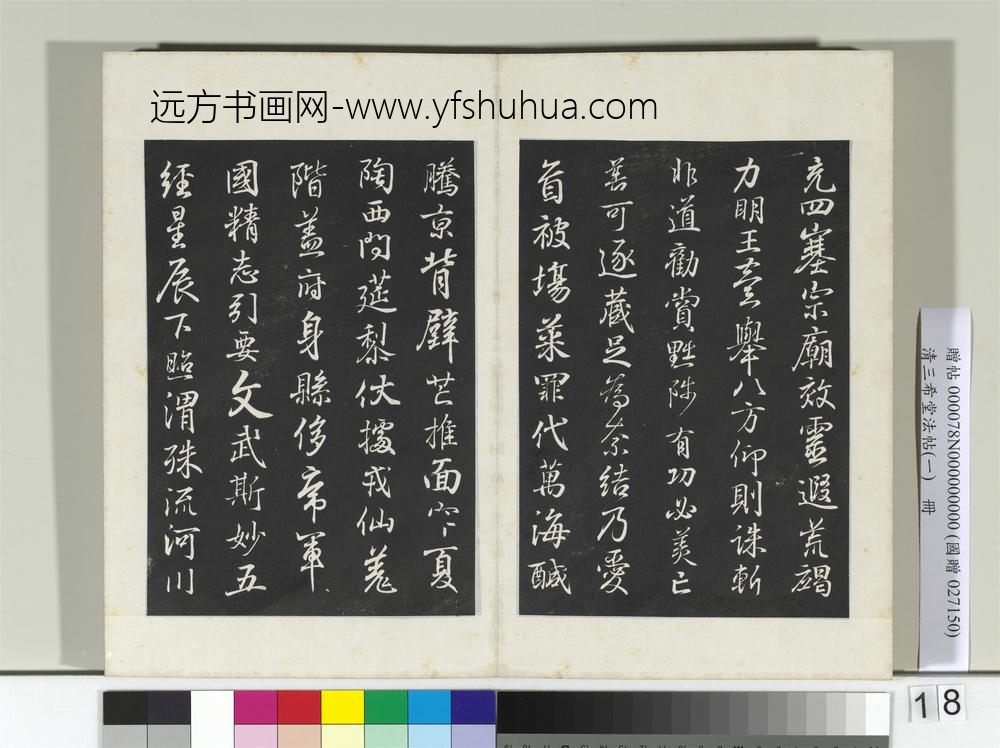 远方书画网-www.yfshuhua.com
充四塞宗廟效靈遐荒竭
力明王臺舉八方仰則誅斬
非道勸賞黜陟有功必羨亡
善可逐藏足為奈結乃愛
首被塲菜罪代萬海醎
騰京背躃芒推面穴夏
陶西門莚黎伏據戎仙羗
階蓋府身縣侈帝軍
國精志引要文武斯妙五
經星辰下照渭殊流河川
贈帖 000078N000000000 (國贈 027150)
清三希堂法帖(一) 冊
18